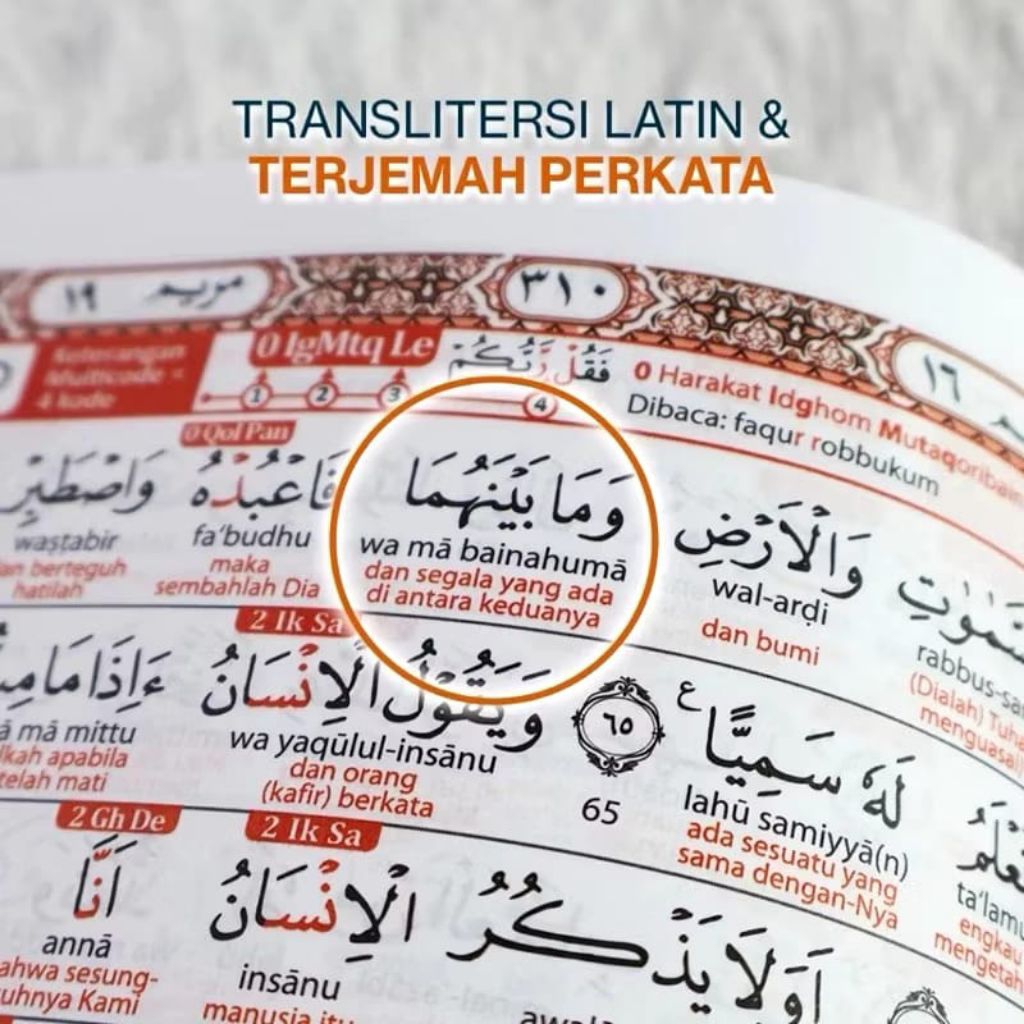 TRANSLITERSI LATIN &
TERJEMAH PERKATA
مريم ١٩
٣١٠
١٦
Keterangan
Multicode -
4 kode
0 IgMtq Le
1 2 3 4
فَقُلْ رَّبُّكُمْ
0 Harakat Idghom Mutaqoribain
Dibaca: faqur robbukum
0 Qol Pan
وَالْاَرْضِ وَمَا بَيْنَهُمَا فَاعْبُدْهُ وَاصْطَبِرْ
rabbus-sa
wal-arḍi
wa mā bainahumā
fa‘budhu
waṣṭabir
(Dialah) Tuha
menguasai
dan bumi
dan segala yang ada
di antara keduanya
maka
sembahlah Dia
an berteguh
hatilah
2 Ik Sa
لَهٗ سَمِيًّا ۝٦٥ وَيَقُوْلُ الْاِنْسَانُ ءَاِذَا مَا
ta‘lamu
lahū samiyyā(n)
65
wa yaqūlul-insānu
ā mā mittu
engkau
mengetah
ada sesuatu yang
sama dengan-Nya
dan orang
(kafir) berkata
lkah apabila
telah mati
2 Ik Sa
2 Gh De
اَوَلَا يَذْكُرُ الْاِنْسَانُ اَنَّا
insānu
annā
manusia itu
ahwa sesung-
uhnya Kami